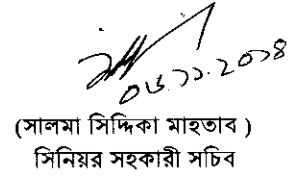 ০৬.১১.২০১৪
(সালমা সিদ্দিকা মাহতাব )
সিনিয়র সহকারী সচিব